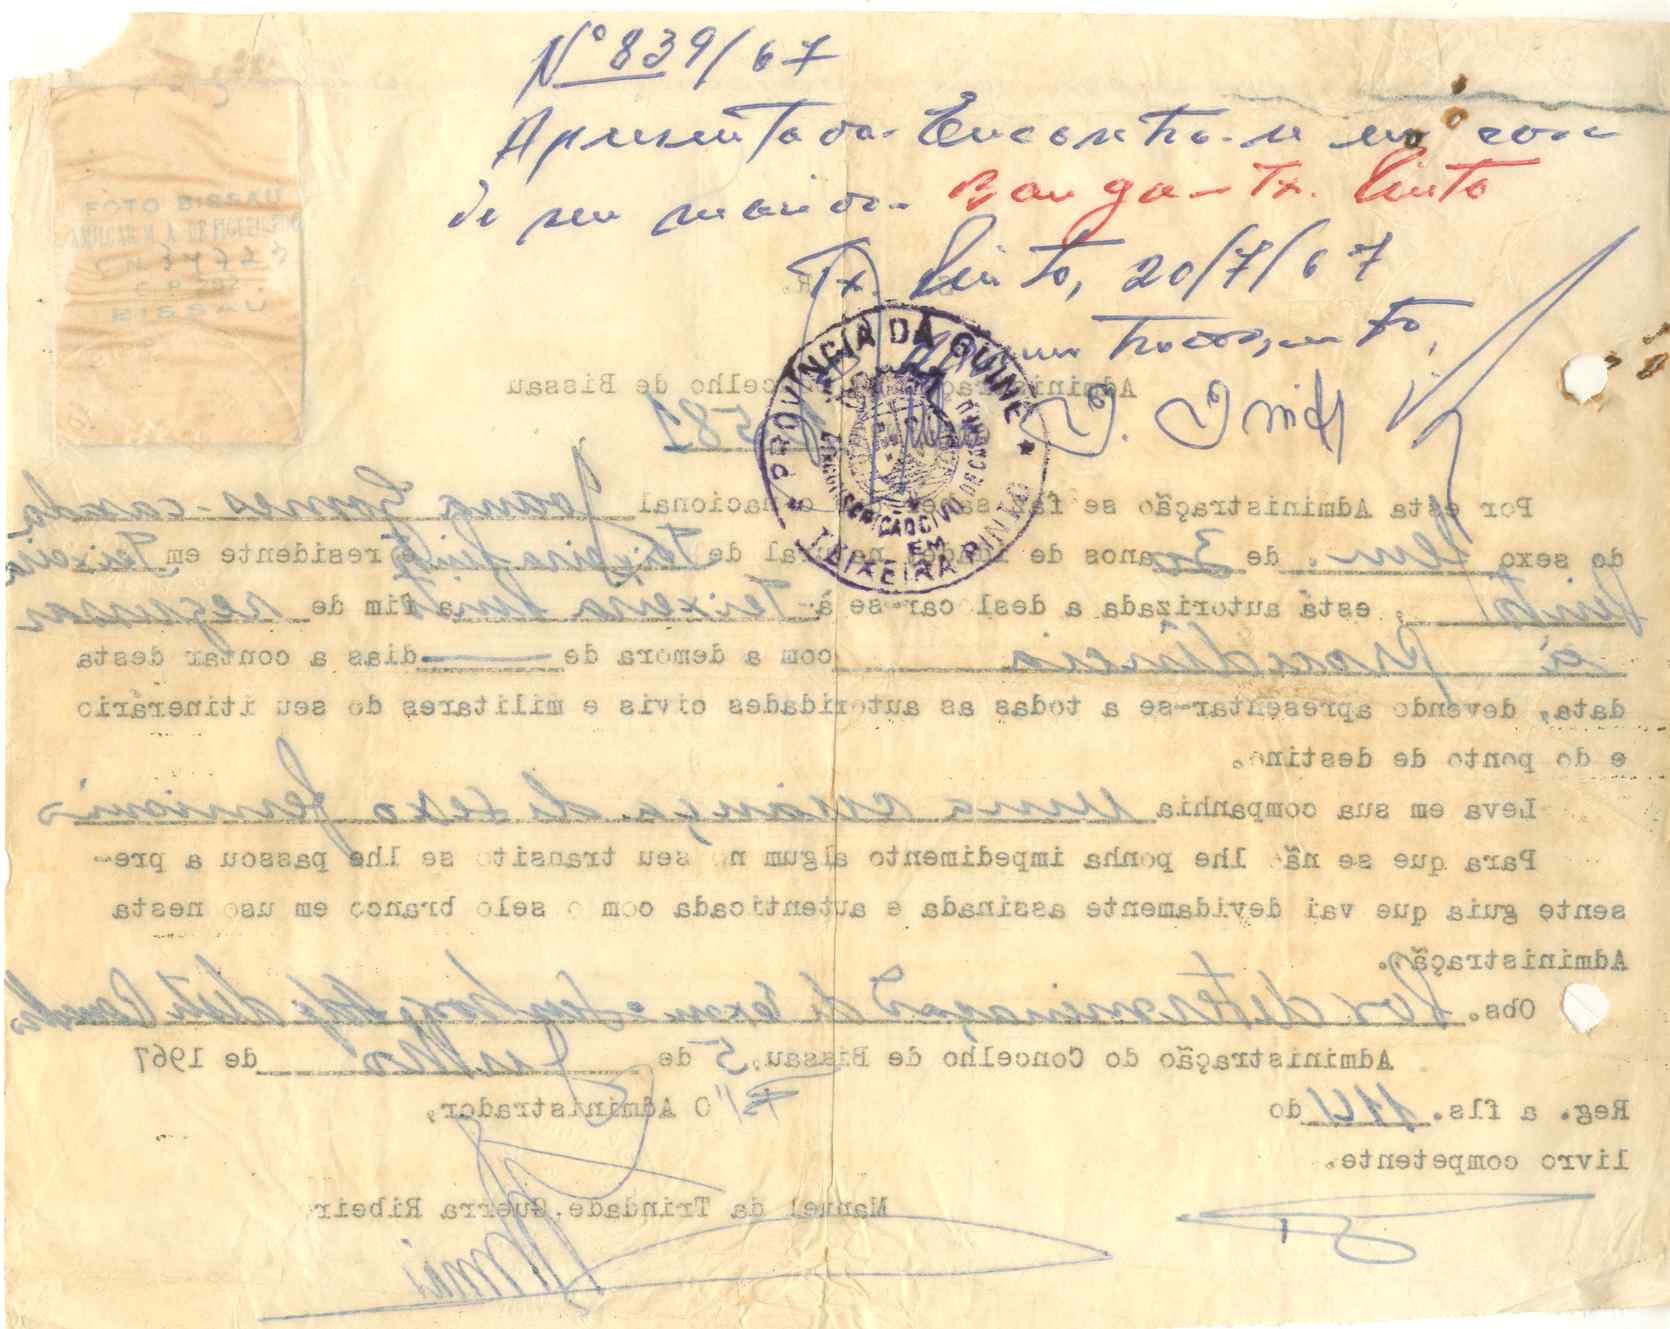 Nº 839/67
Apresentada. Encontra-se em casa
de seu marido. Banga - Tx. Pinto
Tx. Pinto, 20/7/67
PROVÍNCIA DA GUINÉ
EM
TEIXEIRA PINTO
FOTO BISSAU
BISSAU
Administração do Concelho de Bissau
581
Por esta Administração se faz saber que o nacional Joana Gomes - casada
do sexo fem. de 30 anos de idade, natural de Teixeira Pinto e residente em Teixeira
Pinto, está autorizada a deslocar-se à Teixeira Pinto a fim de regressar
à procedência com a demora de dias a contar desta
data, devendo apresentar-se a todas as autoridades civis e militares do seu itinerário
e do ponto de destino.
Leva em sua companhia uma criança do sexo femenino
Para que se não lhe ponha impedimento algum no seu transito se lhe passou a pre-
sente guia que vai devidamente assinada e autenticada com o selo branco em uso nesta
Administração.
Obs. Por determinação do Exmo Senhor deste
Administração do Concelho de Bissau, 5 de Julho de 1967
O Administrador,
Reg. a fls. do
livro competente.
Manuel da Trindade Guerra Ribeiro